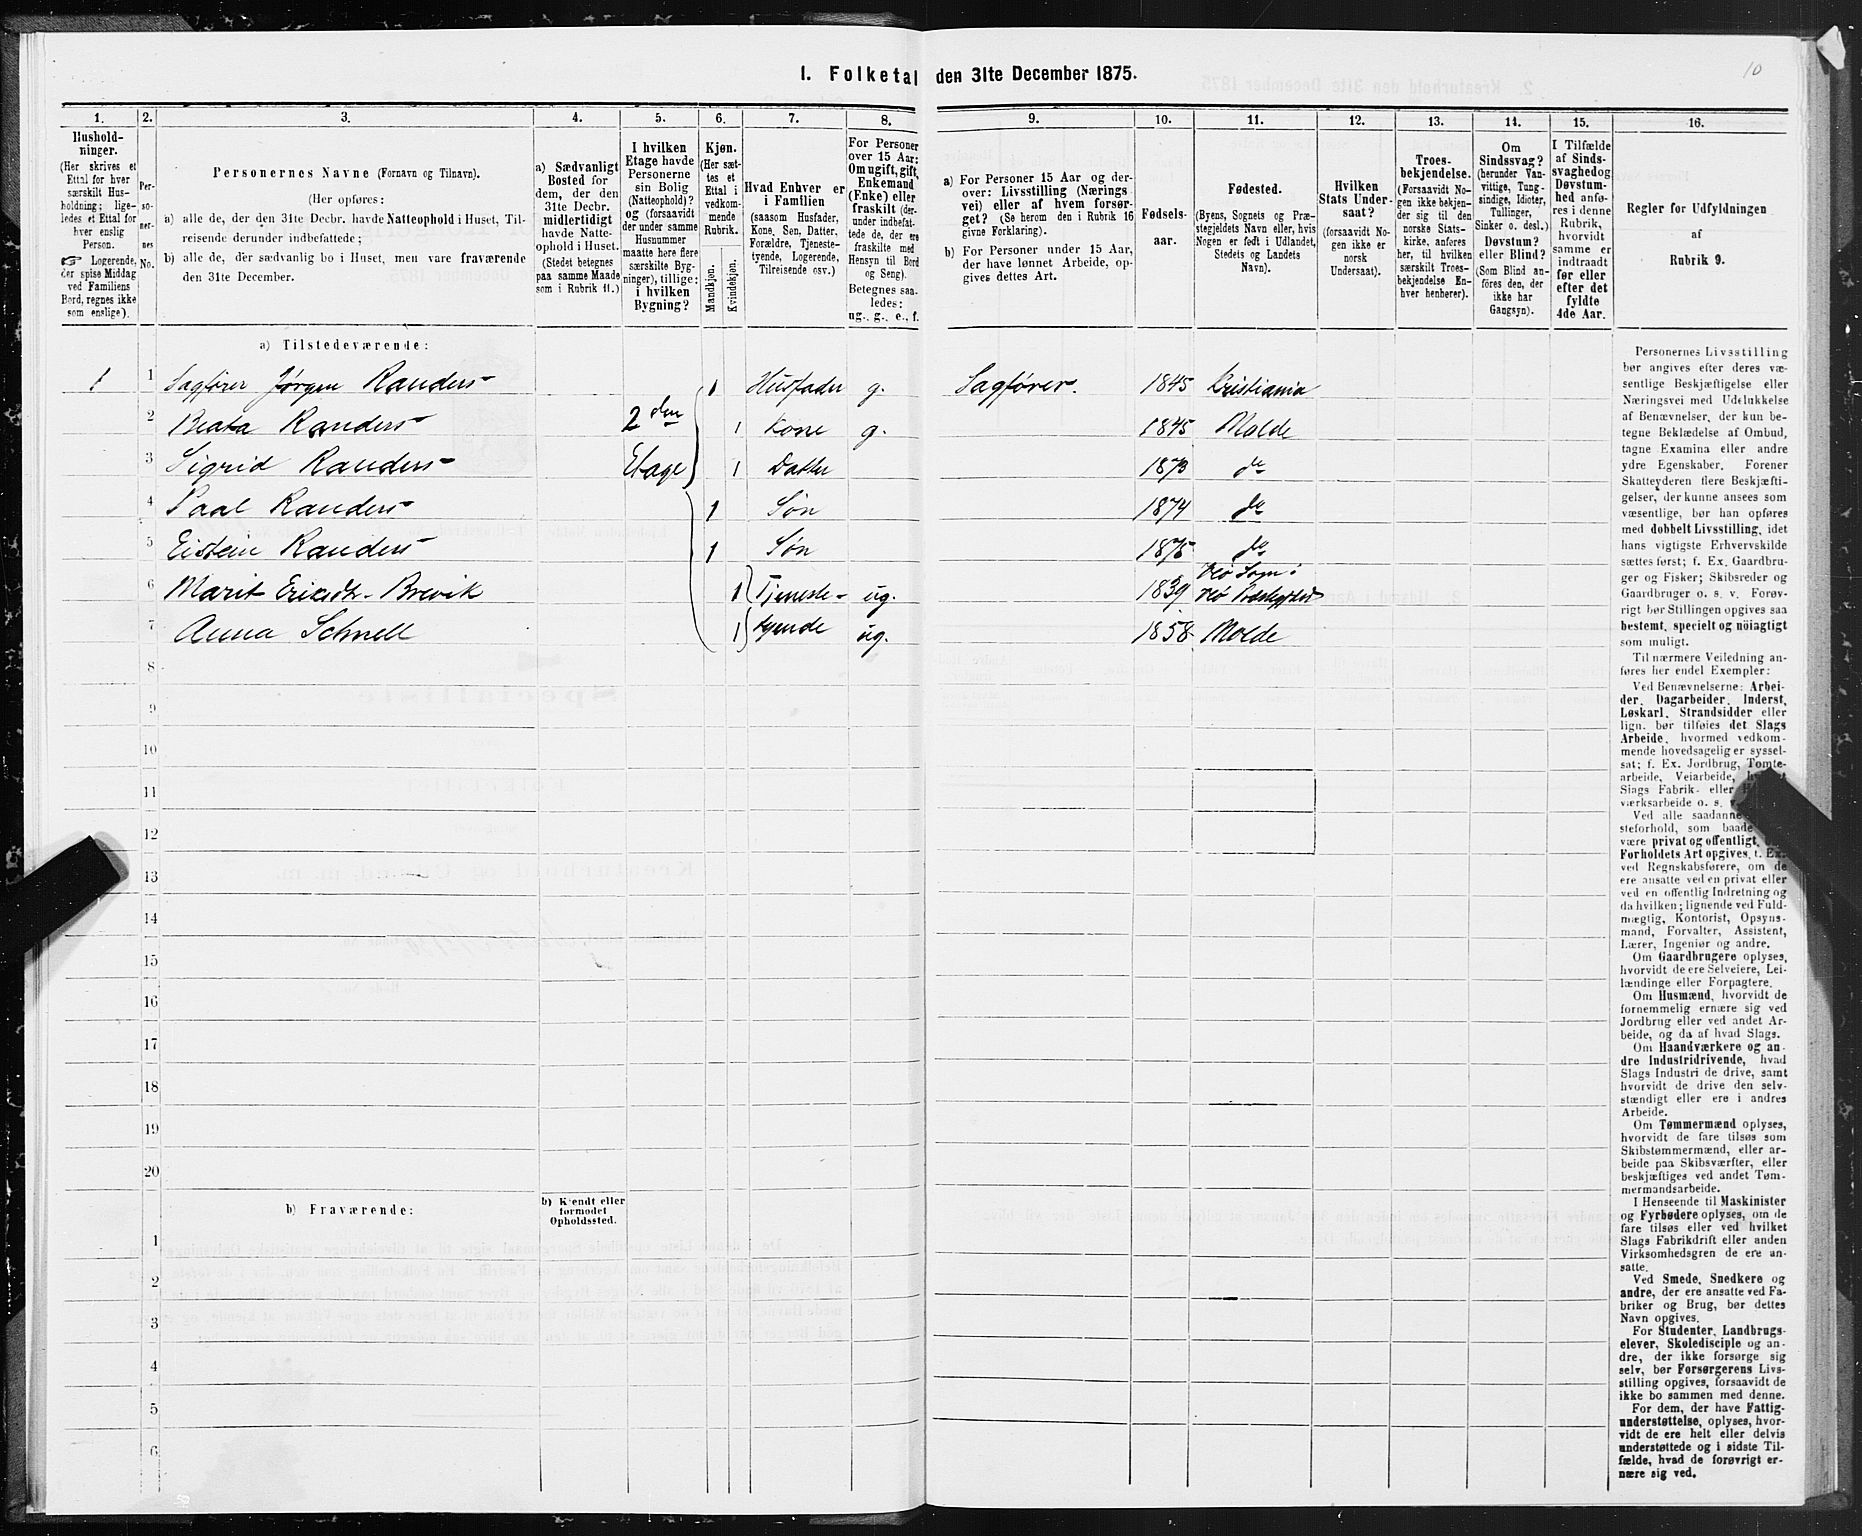 I. Folketal den 31te December 1875.
10
1. 2. 3. 4. 5. 6. 7. 8. 9. 10. 11. 12. 13. 14. 15. 16.
Hushold-
ninger.
(Her skrives et
Ettal for hver
særskilt Hus-
holdning; lige-
ledes et Ettal for
hver enslig
Person.
Logerende,
der spise Middag
ved Familiens
Bord, regnes ikke
som enslige).
Per-
so-
ner-
nes
No.
Personernes Navne (Fornavn og Tilnavn).
(Her opføres:
a) alle de, der den 31te Decbr. havde Natteophold i Huset, Til-
reisende derunder indbefattede;
b) alle de, der sædvanlig bo i Huset, men vare fraværende
den 31te December.
a) Sædvanligt
Bosted for
dem, der den
31te Decbr.
midlertidigt
havde Natte-
ophold i Huset.
(Stedet betegnes
paa samme Maade
som i Rubrik 11.)
I hvilken
Etage havde
Personerne
sin Bolig
(Natteophold)?
og (forsaavidt
der under samme
Husnummer
maatte høre flere
særskilte Byg-
ninger), tillige:
i hvilken
Bygning?
Kjøn.
(Her sæt-
tes et
Ettal i
vedkom-
mende
Rubrik.
Mandkjøn.
Kvindekjøn.
Hvad Enhver er
i Familien
(saasom Husfader,
Kone, Søn, Datter,
Forældre, Tjeneste-
tyende, Logerende,
Tilreisende osv.)
For Personer
over 15 Aar:
Om ugift, gift,
Enkemand
(Enke) eller
fraskilt (der-
under indbefat-
tede de, der ere
fraskilte med
Hensyn til Bord
og Seng).
Betegnes saa-
ledes:
ug., g., e., f.
a) For Personer 15 Aar og der-
over: Livsstilling (Nærings
vei) eller af hvem forsør-
get? (Se herom den i Rubrik 16
givne Forklaring).
b) For Personer under 15 Aar,
der have lønnet Arbeide, op-
gives dettes Art.
Fødsels-
aar.
Fødested.
(Byens, Sognets og Præ-
stegjeldets Navn eller, hvis
Nogen er født i Udlandet,
Stedets og Landets
Navn).
Hvilken
Stats Under-
saat?
(forsaavidt No-
gen ikke er
norsk
Undersaat).
Troes-
bekjendelse.
(Forsaavidt No-
gen ikke bekjen-
der sig til den
norske Stats-
kirke, anføres
her, til hvilken
særskilt Troes-
bekjendelse En-
hver henhører).
Om
Sindssvag?
(herunder Van-
vittige, Tung-
sindige, Idioter,
Tullinger,
Sinker o. desl.)
Døvstum?
eller Blind?
(Som Blind an-
føres den, der
ikke har
Gangsyn).
I Tilfælde
af Sinds-
svaghed og
Døvstum-
hed anfø-
res i denne
Rubrik,
hvorvidt
samme er
indtraadt
før eller
efter det
fyldte
4de Aar.
Regler for Udfyldningen
af
Rubrik 9.
a) Tilstedeværende:
1 1 Sagfører Jørgen Randers 1 Husfader g. Sagfører. 1845 Kristiania
2 Beata Randers 2den 1 Kone g. 1845 Molde
3 Sigrid Randers Etage 1 Datter 1873 do
4 Paal Randers 1 Søn 1874 do
5 Eistein Randers 1 Søn 1875 do
6 Marit Breivik 1 Tjeneste- ug. 1839
7 Anna Schnell 1 tyende ug. 1858 Molde
8
9
10
11
12
13
14
15
16
17
18
19
20
b) Fraværende:
b) Kjendt eller
formodet
Opholdssted.
1
2
3
4
5
6
Personernes Livsstilling
bør angives efter deres væ-
sentlige Beskjæftigelse eller
Næringsvei med Udelukkelse
af Benævnelser, der kun be-
tegne Beklædelse af Ombud,
tagne Examina eller andre
ydre Egenskaber. Forener
Skatteyderen flere Beskjæfti-
gelser, der kunne ansees som
væsentlige, bør han opføres
med dobbelt Livsstilling, idet
hans vigtigste Erhvervskilde
sættes først; f. Ex. Gaardbru-
ger og Fisker; Skibsreder og
Gaardbruger o. s. v. Forøv-
rigt bør Stillingen opgives saa
bestemt, specielt og nöiagtigt
som muligt.
Til nærmere Veiledning an-
føres her endel Exempler:
Ved Benævnelserne: Arbei-
der, Dagarbeider, Inderst,
Løskarl, Strandsidder eller
lign. bør tilføies det Slags
Arbeide, hvormed vedkom-
mende hovedsagelig er syssel-
sat; f. Ex. Jordbrug, Tomte-
arbeide, Veiarbeide,
Slags Fabrik- eller
værksarbeide o. s.
Ved alle saadanne
steforhold, som baade
være privat og offentligt,
Forholdets Art opgives, f. Ex.
ved Regnskabsførere, om de
ere ansatte ved en privat eller
ved en offentlig Indretning og
da hvilken; lignende ved Fuld-
mægtig, Kontorist, Opsyns-
mand, Forvalter, Assistent,
Lærer, Ingeniør og andre.
Om Gaardbrugere oplyses,
hvorvidt de ere Selveiere, Lei-
lændinge eller Forpagtere.
Om Husmænd, hvorvidt de
fornemmelig ernære sig ved
Jordbrug eller ved andet Ar-
beide, og da af hvad Slags.
Om Haandværkere og an-
dre Industridrivende, hvad
Slags Industri de drive, samt
hvorvidt de drive den selv-
stændigt eller ere i andres
Arbeide.
Om Tømmermænd oplyses,
hvorvidt de fare tilsøs som
Skibstømmermænd, eller ar-
beide paa Skibsværfter, eller
beskjæftiges ved andet Tøm-
mermandsarbeide.
I Henseende til Maskinister
og Fyrbødere oplyses, om de
fare tilsøs eller ved hvilket
Slags Fabrikdrift eller anden
Virksomhedsgren de ere an-
satte.
Ved Smede, Snedkere og
andre, der ere ansatte ved Fa-
briker og Brug, bør dettes
Navn opgives.
For Studenter, Landbrugs-
elever, Skoledisciple og an-
dre, der ikke forsørge sig
selv, bør Forsørgerens Livs-
stilling opgives, forsaavidt de
ikke bo sammen med denne.
For dem, der have Fattig-
understøttelse, oplyses, hvor-
vidt de ere helt eller delvis
understøttede og i sidste Til-
fælde, hvad de forøvrigt er-
nære sig ved.